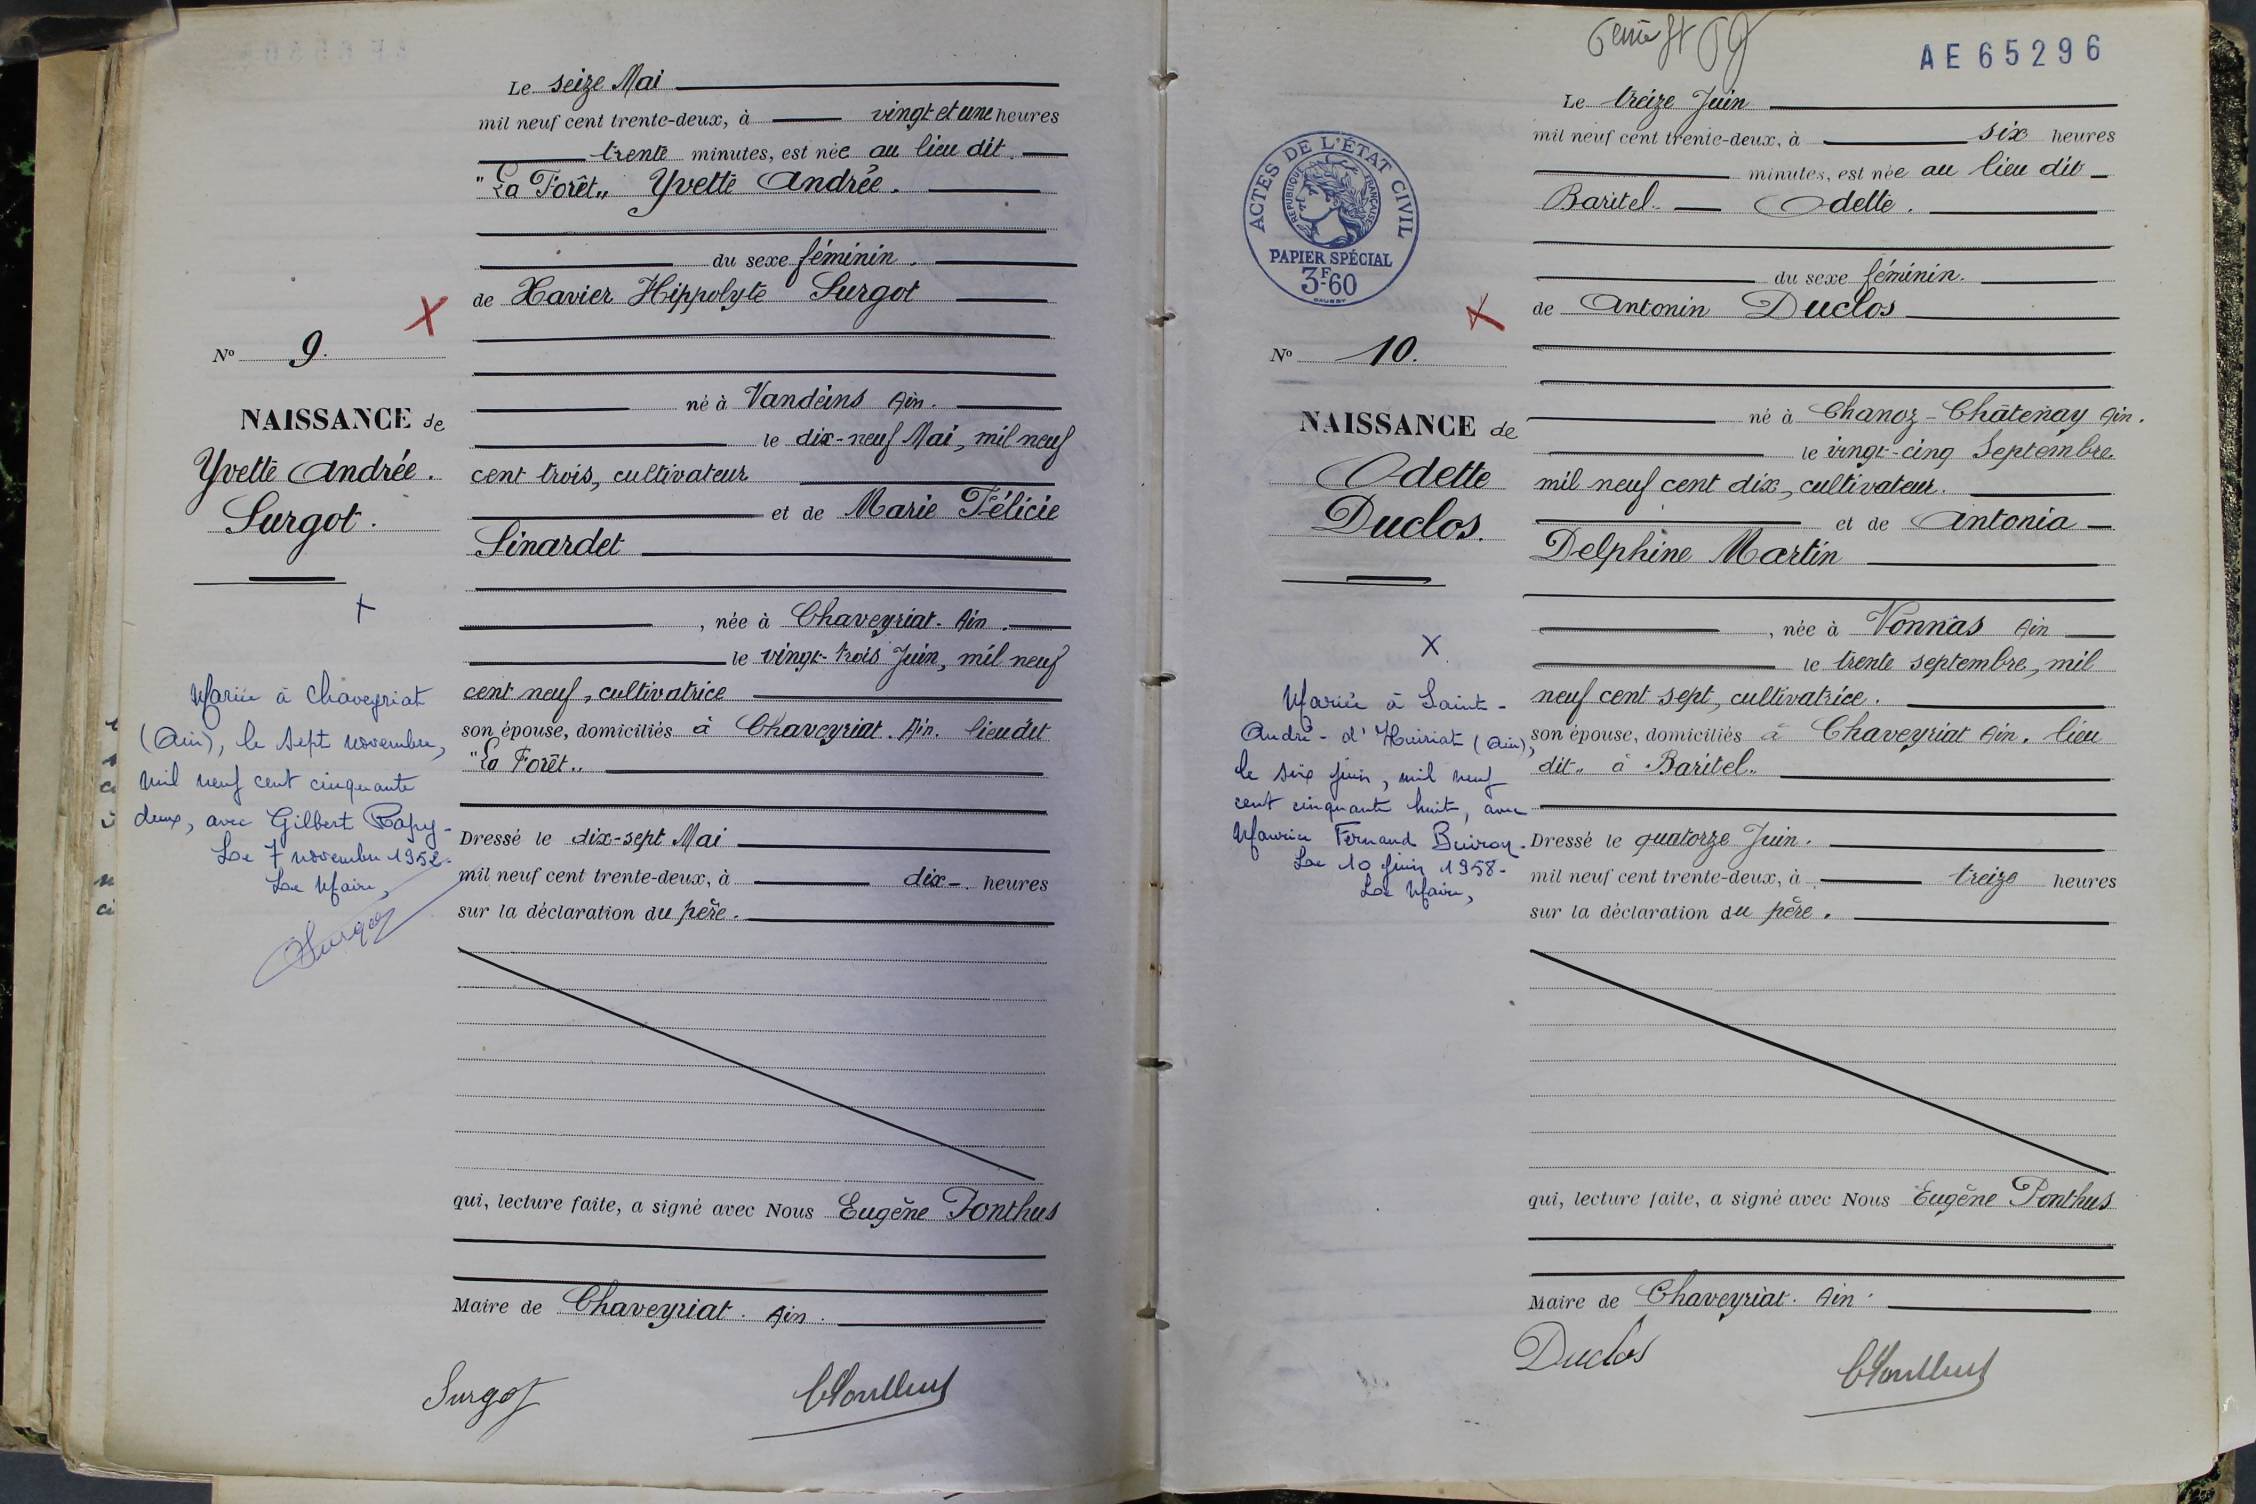 Le seize Mai
mil neuf cent trente-deux, à vingt et une heures
trente minutes, est née au lieu dit
"La Forêt" Yvette Andrée.
du sexe féminin.
de Xavier Hippolyte Surgot
né à Vandeins Ain.
le dix-neuf Mai, mil neuf
cent trois, cultivateur
et de Marie Félicie
Sinardet
, née à Chaveyriat. Ain.
le vingt-trois Juin, mil neuf
cent neuf, cultivatrice
son épouse, domiciliés à Chaveyriat. Ain. lieu dit
"La Forêt"
Dressé le dix-sept Mai
mil neuf cent trente-deux, à dix heures
sur la déclaration du père.
qui, lecture faite, a signé avec Nous Eugène Ponthus
Maire de Chaveyriat. Ain.
Surgot
No 9.
NAISSANCE de
Yvette Andrée.
Surgot.
Mariée à Chaveyriat
(Ain), le sept novembre,
mil neuf cent cinquante
deux, avec Gilbert
Le 7 novembre 1952.
Le Maire,
AE65296
Le treize Juin
mil neuf cent trente-deux, à six heures
minutes, est née au lieu dit
Baritel. Odette.
du sexe féminin.
de Antonin Duclos
né à Chanoz-Châtenay Ain.
le vingt-cinq Septembre
mil neuf cent dix, cultivateur.
et de Antonia
Delphine Martin
, née à Vonnas Ain
le trente septembre, mil
neuf cent sept, cultivatrice.
son épouse, domiciliés à Chaveyriat Ain. lieu
dit " à Baritel"
Dressé le quatorze Juin.
mil neuf cent trente-deux, à treize heures
sur la déclaration du père.
qui, lecture faite, a signé avec Nous Eugène Ponthus
Maire de Chaveyriat. Ain.
Duclos
ACTES DE L'ÉTAT CIVIL
RÉPUBLIQUE FRANÇAISE
PAPIER SPÉCIAL
3F.60
No 10.
NAISSANCE de
Odette
Duclos.
Mariée à Saint-
André-d'Huiriat (Ain),
le six juin, mil neuf
cent cinquante huit, avec
Maurice Fernand Buiron.
Le 10 juin 1958.
Le Maire,